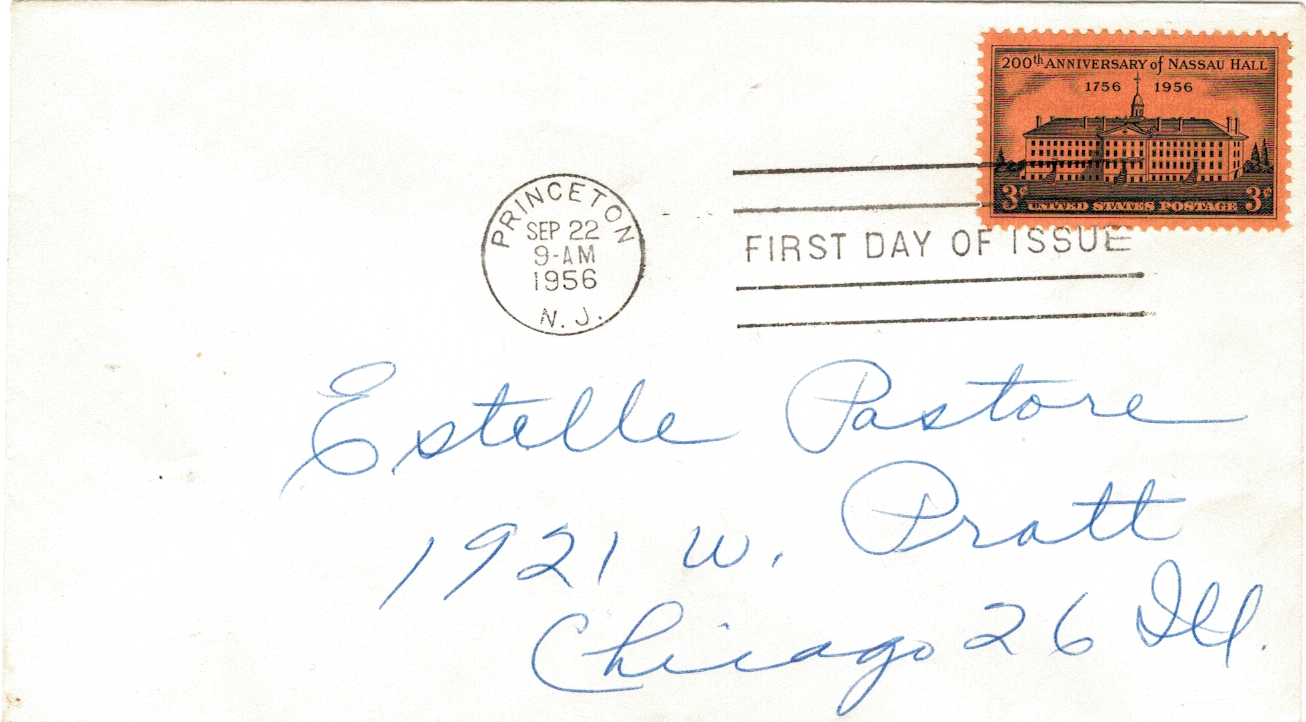 200th ANNIVERSARY of NASSAU HALL
1756 1956
3¢ UNITED STATES POSTAGE 3¢
PRINCETON
SEP 22
9-AM
1956
N. J.
FIRST DAY OF ISSUE
Estelle Pastore
1921 W. Pratt
Chicago 26 Ill.